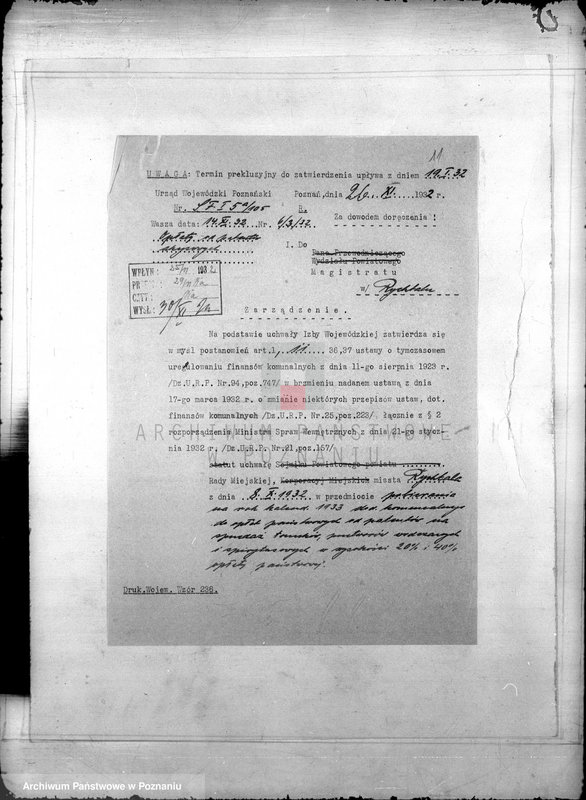 11
U W A G A: Termin prekluzyjny do zatwierdzenia upływa z dniem 19.I.32
Urząd Wojewódzki Poznański Poznań, dnia 26. XI. 1932 r.
Nr. SF I 5a/105 R.
Wasza data: 14.XI.32. Nr. 4/3/32 Za dowodem doręczenia!
Opłaty od
I. Do
Pana Przewodniczącego
Wydziału Powiatowego
Magistratu
w/ Rychtalu
WPŁYN: 1932
CZYT:
WYSŁ: 30/XI
Zarządzenie.
Na podstawie uchwały Izby Wojewódzkiej zatwierdza się
w myśl postanowień art.1, 11 36,37 ustawy o tymczasowem
uregulowaniu finansów komunalnych z dnia 11-go sierpnia 1923 r
/Dz.U.R.P. Nr.94,poz.747/ w brzmieniu nadanem ustawą z dnia
17-go marca 1932 r. o zmianie niektórych przepisów ustaw, dot.
finansów komunalnych /Dz.U.R.P. Nr.25,poz.223/ łącznie z § 2
rozporządzenia Ministra Spraw Wewnętrznych z dnia 21-go stycz
nia 1932 r. /Dz.U.R.P. Nr.21,poz.157/
statut uchwałę Sejmiku Powiatowego powiatu
Rady Miejskiej, Korporacyj Miejskich miasta Rychtala
z dnia 8. X. 1932 w przedmiocie pobierania
na rok kalend. 1933 dod. komunalnego
do opłat państwowych od patentów na
sprzedaż trunków, przetworów wódczanych
i spirytusowych w wysokości 20% i 40%
opłaty państwowej.
Druk.Wojew. Wzór 236.
ARCHIWUM PAŃSTWOWE
W POZNANIU
Archiwum Państwowe w Poznaniu